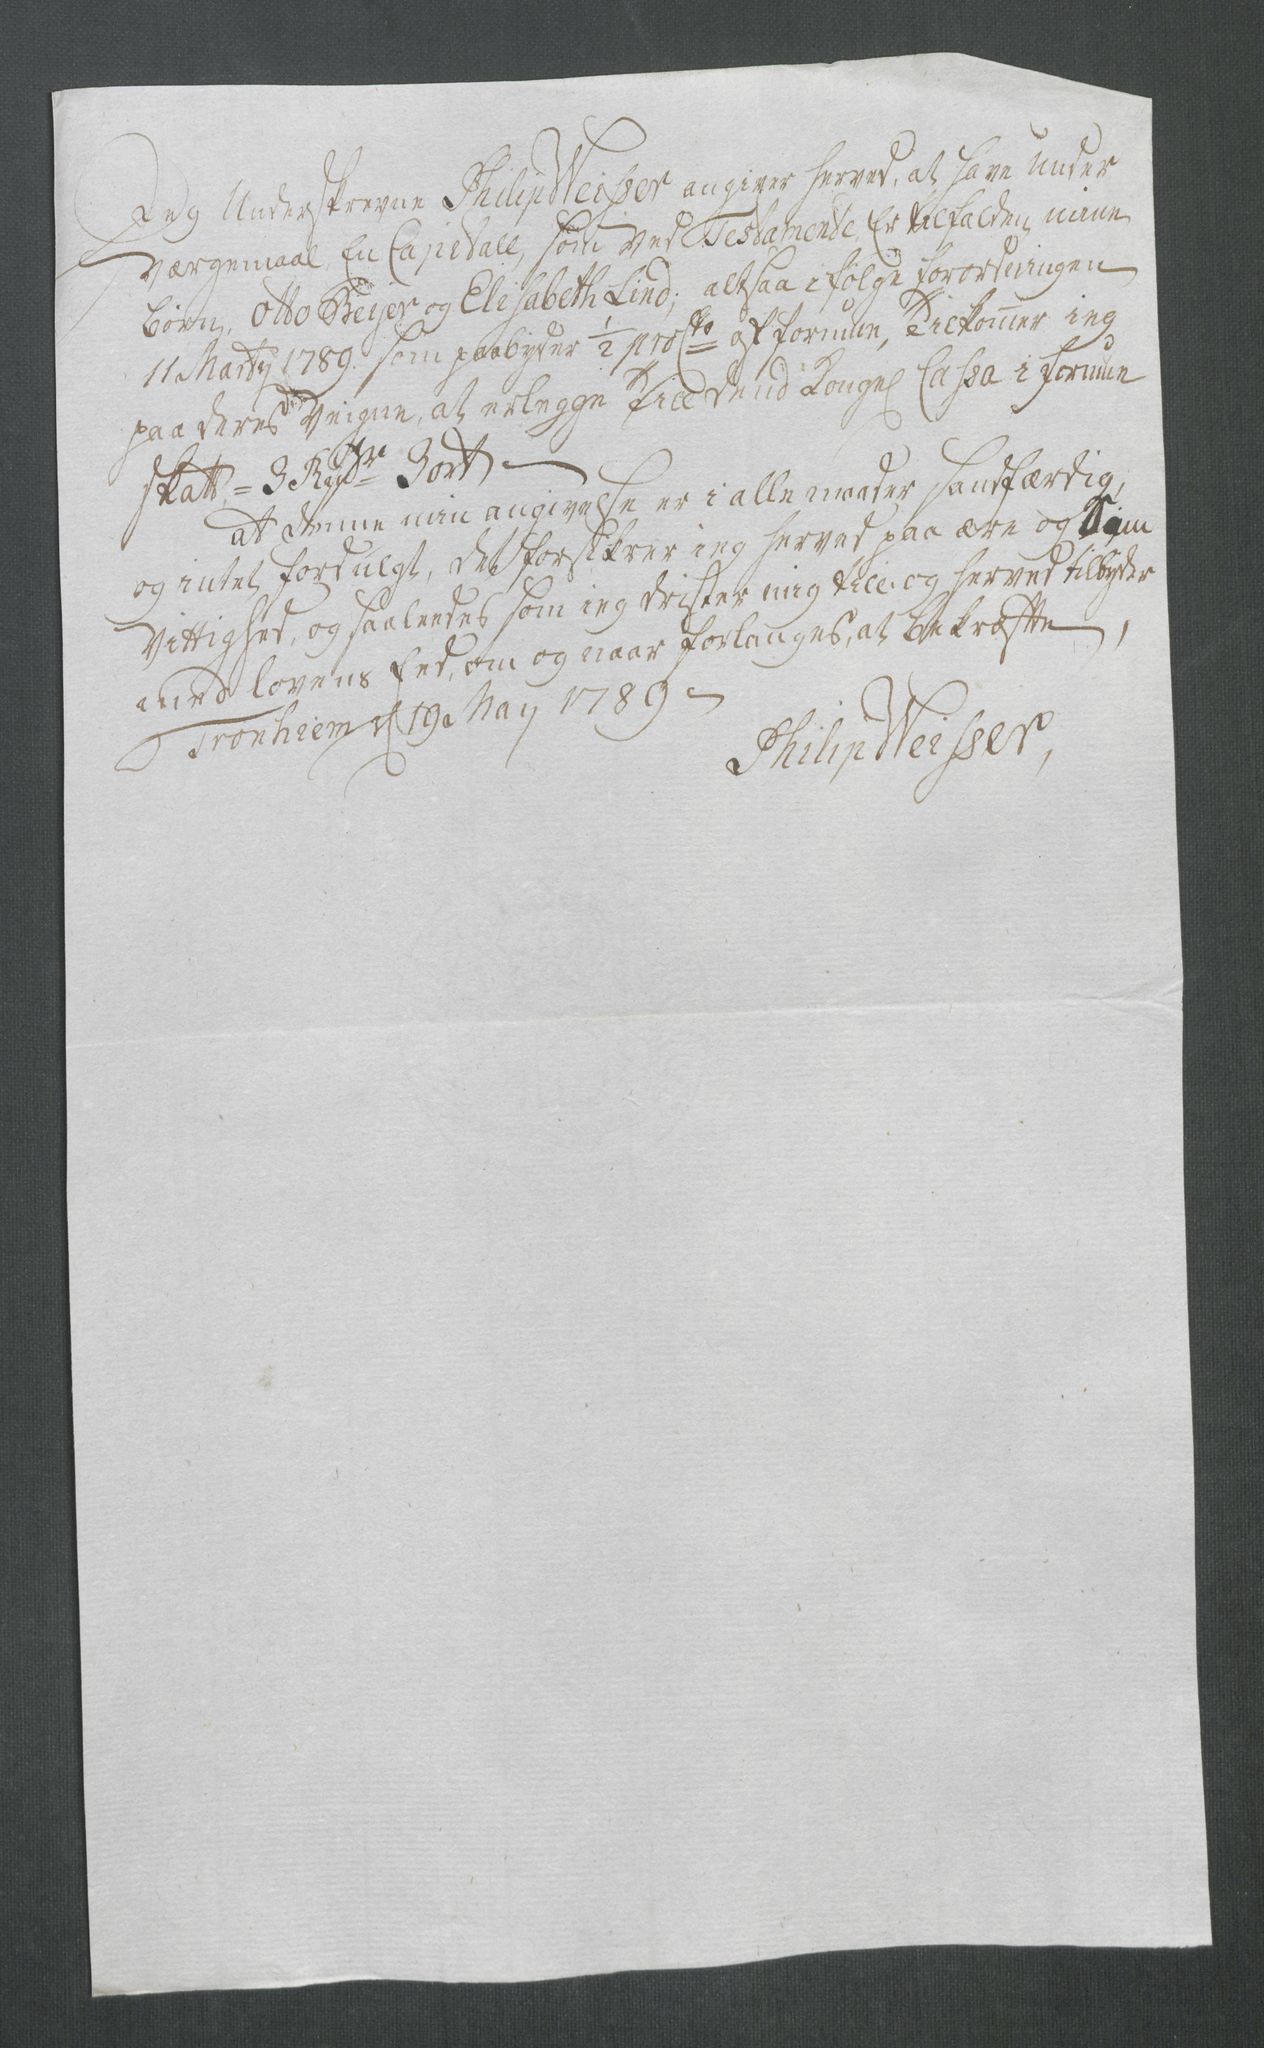 Jeg Underskrevne Philip Weisser angiver herved, at have under
Værgemaal, En Capetall, som ved Testamente, Er tilfalden mine
börn, Otto Beijer og Elisabeth Lind; altsaa i fölge forordningen
11 Martij 1789. som paabyder 1/2 pro Cto af formue, Tilkom̄er ieg
paa deres Veigne, at erlegge till dend Kongel Cassa i formue
skatt = 3 Rdr 3 ort
at denne min angivelse er i alle maader sandfærdig,
og intet fordulgt, det forsikrer ieg herved paa ære og Sam
Vittighed, og saaledes som ieg drister mig till og herved tilbyder
med lovens Eed, om og naar forlanges, at bekræfte,
Tronhiem d 19 May 1789
Philip Weisser,